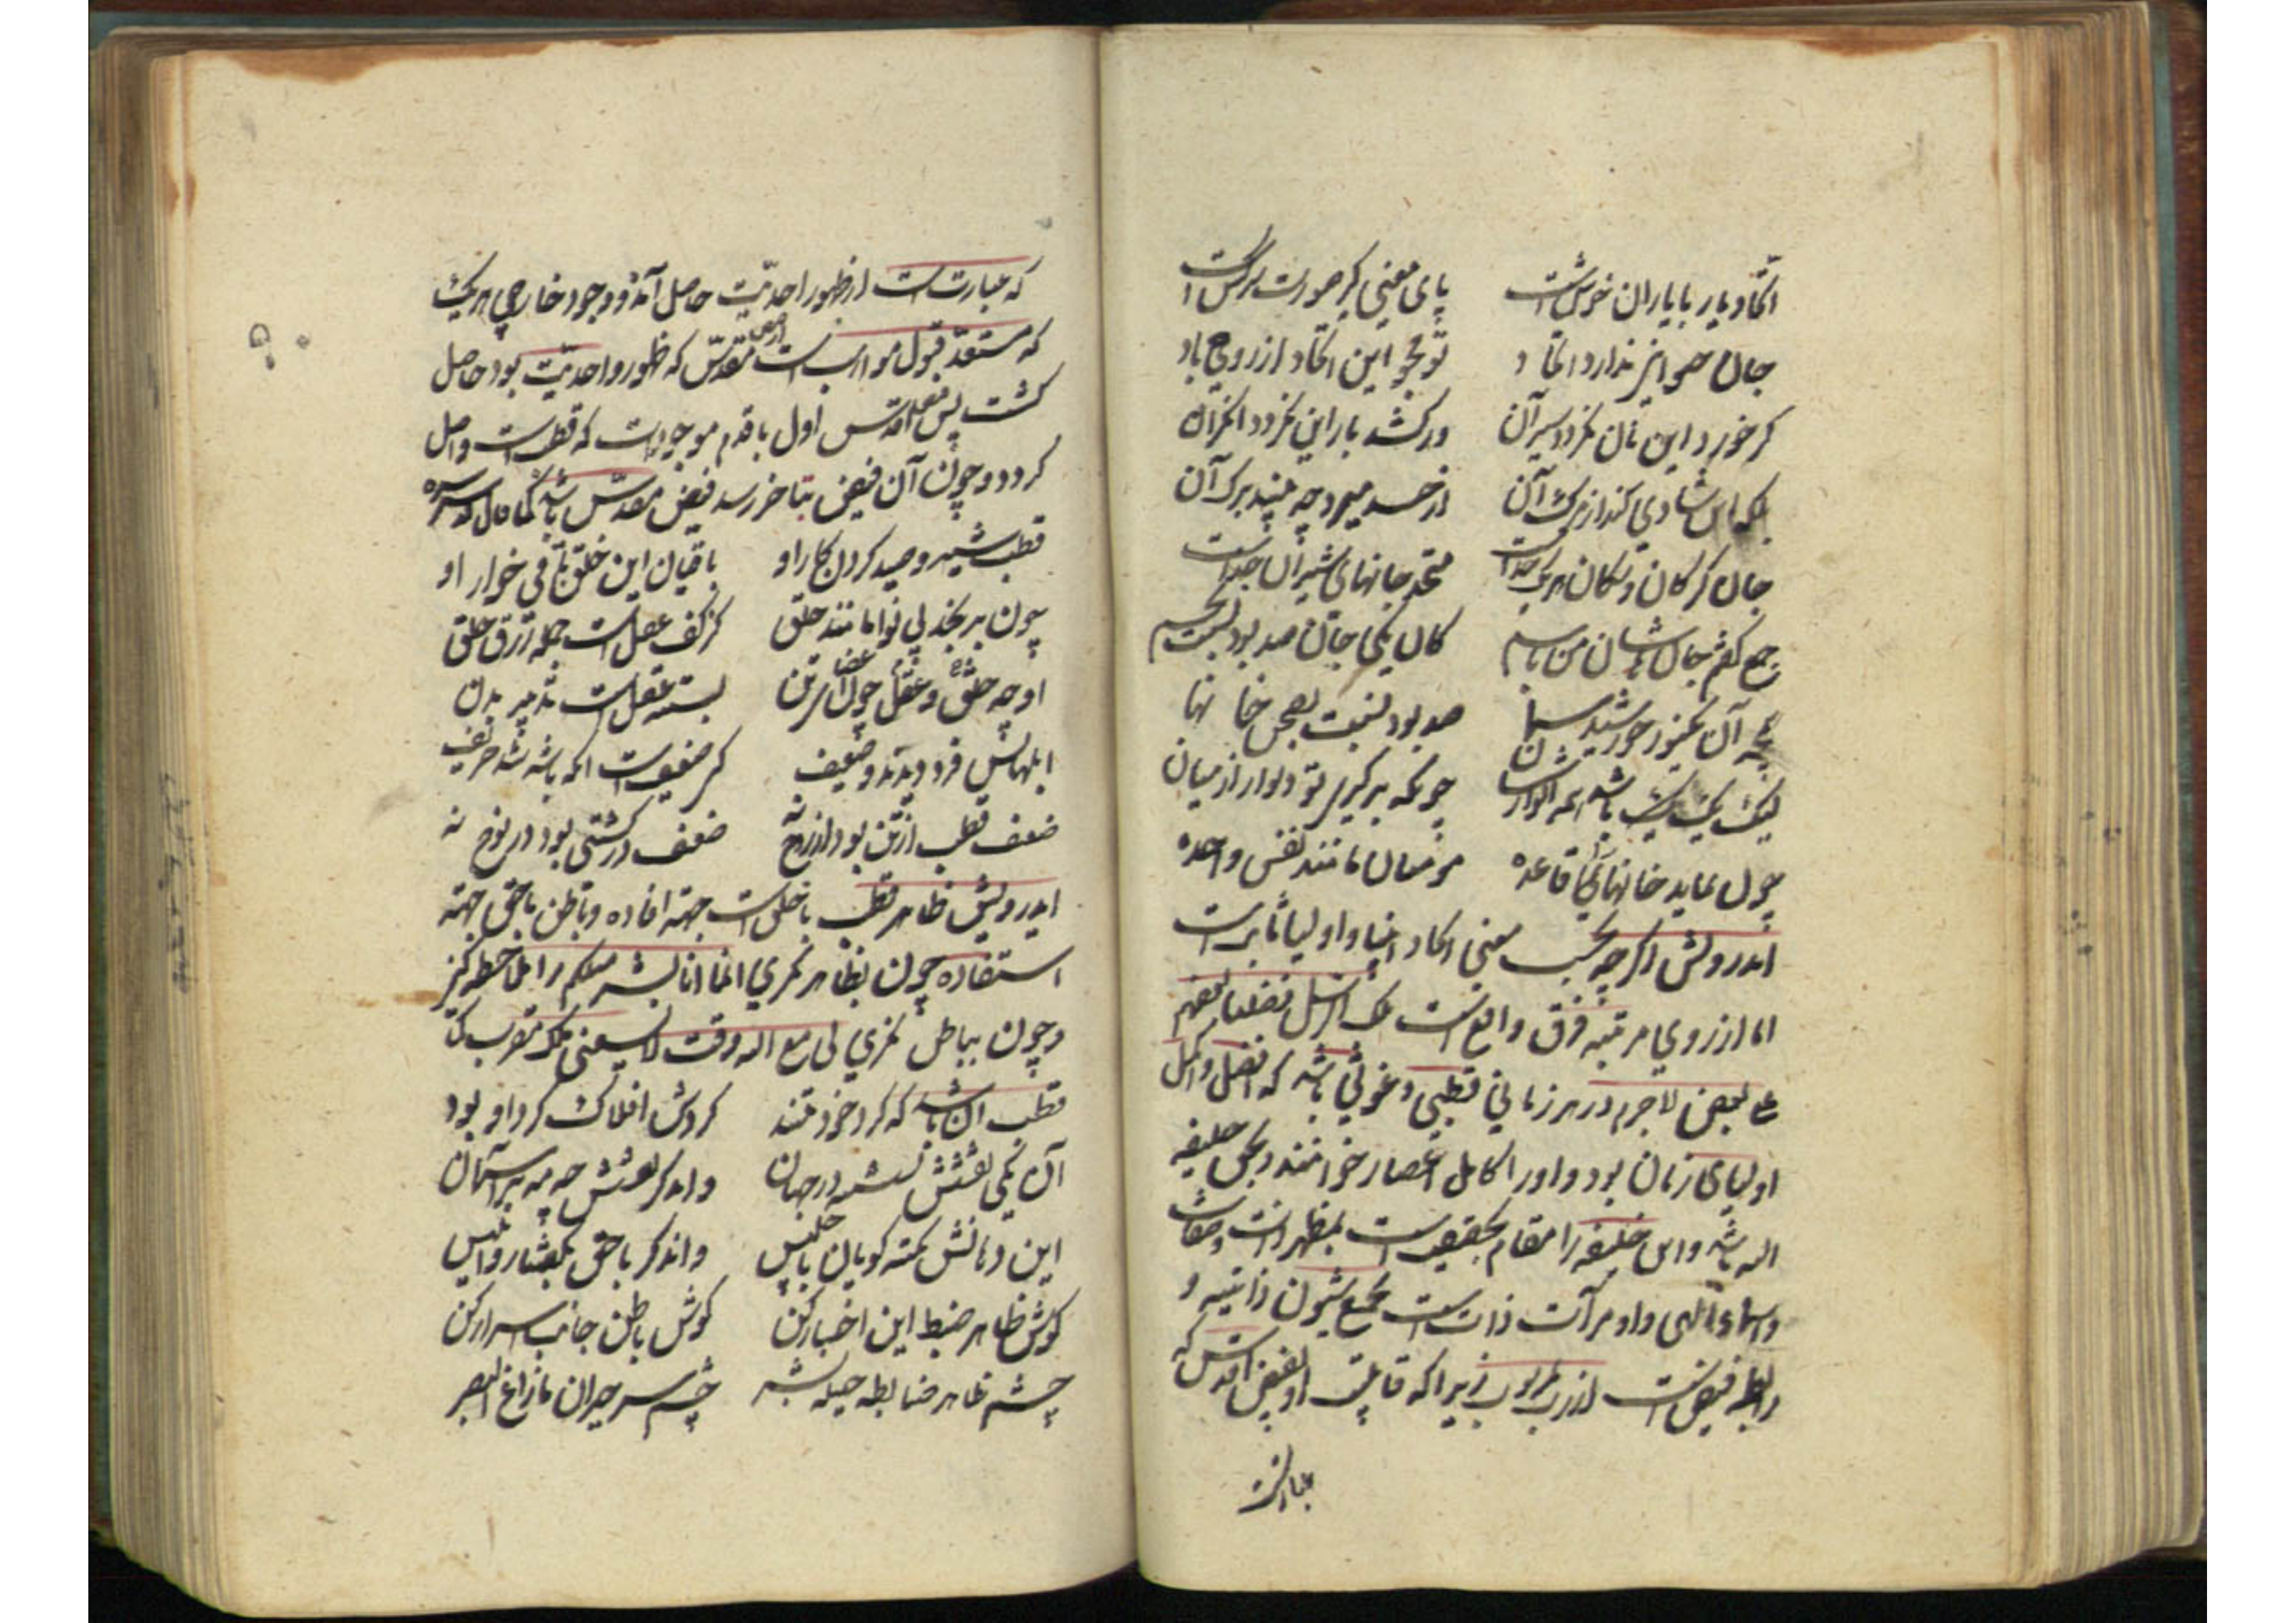 اتّحاد یار با یاران خوش است پای معنی گیر صورت سرکش است
جان حیوانی ندارد اتحاد تو مجو این اتّحاد از روح باد
گر خورد این نان نگردد سیر آن ور کشد بار این نگردد گران آن
بلکه این شادی کند از مرگ آن از حسد میرد چو بیند برگ آن
جان گرگان و سگان هر یک جداست متحد جانهای شیران خداست
جمع گفتم جانهاشان من باسم کان یکی جان صد بود نسبت بجسم
همچو آن یک نور خورشید سما صد بود نسبت بصحن خانها
لیک یک باشد همه انوارشان چونکه برگیری تو دیوار از میان
چون نماید خانها را قاعده مومنان مانند نفس واحده
ایدرویش اگر چه بحسب معنی اتحاد انبیا و اولیا ثابت است
اما از روی مرتبه فرق واقعست تلک الرسل فضلنا بعضهم
علی بعض لاجرم در هر زمانی قطبی و غوثی باشد که افضل و اکمل
اولیای زمان بود و او را کامل اعصار خوانند و بحق خلیفه
الله باشد و این خلیفه را مقام بحقیقتست بمظهر ذات و صفات
و اسماء الهی و او مرآت ذاتست مجمع شئون ذاتیه و
رابطه فیض است از رب بمربوب زیرا که قابلیت او بفیض اقدس که
عبارتست
که عبارتست از ظهور احدیّت حاصل آمد و وجود خارجی هر یک
که مستعدّ قبول مواهبست از فیض مقدّس که ظهور واحدیّت بود حاصل
گشت پس فیض اقدس اول باقدم موجودات که قطبست واصل
گردد و چون آن فیض بتاخر رسد فیض مقدّس باشد کما قال قدس سره
قطب شیر و صید کردن کار او باقیان این خلق باقی خوار او
چون برنجد بی نوا مانند خلق کز کف عقلست جمله رزق خلق
او چو عقل و خلق چون اعضا و تن بسته عقلست تدبیر بدن
ابلهانش فرد دیدند و ضعیف کی ضعیفست آنکه باشه شد حریف
ضعف قطب از تن بود از روح نه ضعف در کشتی بود در نوح نه
ایدرویش ظاهر قطب با خلق است جهة افاده و باطن با حق جهة
استفاده چون بظاهر نگری انما انا بشر مثلکم را ملاحظه کنی
و چون بباطن نگری لی مع الله وقت لا یسعنی ملک مقرب
قطب آن باشد که گرد خود تند گردش افلاک گرد او بود
آن یکی نقشش نشسته در جهان وان دگر نقشش چو مه بر آسمان
این دهانش نکته گویان با جلیس وان دگر با حق بگفتار و انیس
گوش ظاهر ضبط این اخبار کن گوش باطن جاذب اسرار کن
چشم ظاهر ضابطه حیله بشر چشم سر حیران ما زاغ البصر